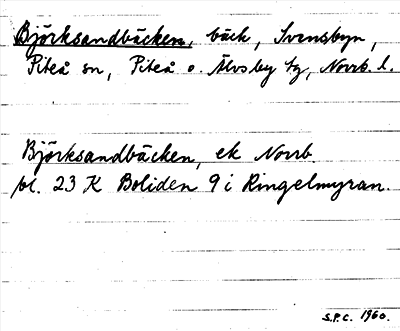 Björksandbäcken, bäck, Svensbyn,
Piteå sn, Piteå o. Älvsby tg, Norrb. l.
Björksandbäcken, ek Norrb
bl. 23 K Boliden 9 i Ringelmyran.
S.P.C. 1960.